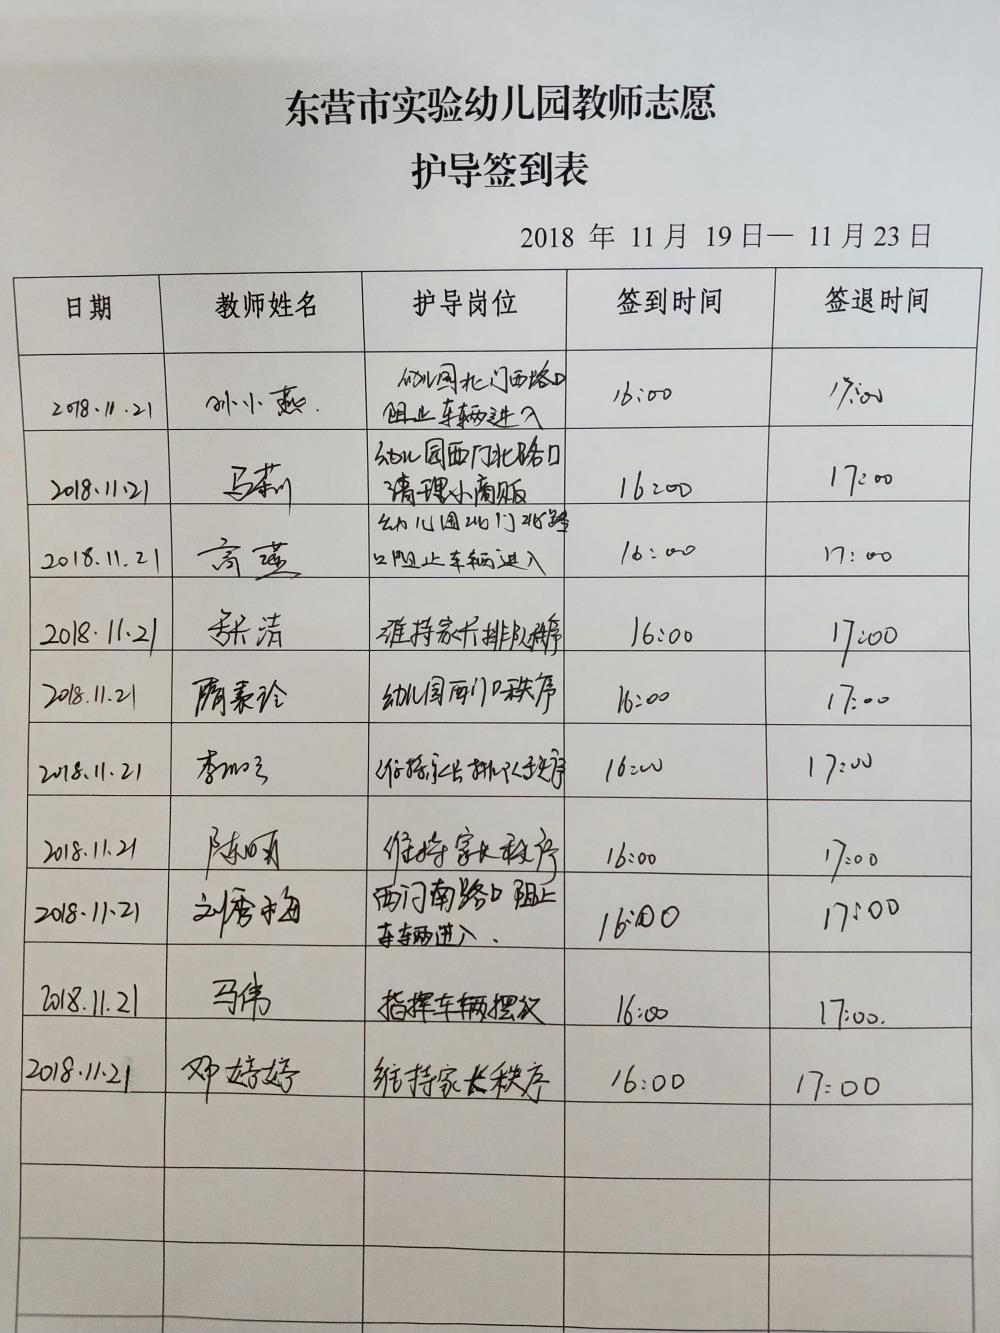 东营市实验幼儿园教师志愿
护导签到表
2018 年 11月 19日— 11月23日
日期 教师姓名 护导岗位 签到时间 签退时间
2018.11.21 孙小燕. 幼儿园北门西路口 16:00 17:00
阻止车辆进入
2018.11.21 马莉 幼儿园西门北路口 16:00 17:00
清理小商贩
2018.11.21 高 幼儿园北门北路 16:00 17:00
口阻止车辆进入
2018.11.21 清 维持家长排队秩序 16:00 17:00
2018.11.21 隋素玲 幼儿园西门口秩序 16:00 17:00
2018.11.21 李 维持家长排队秩序 16:00 17:00
2018.11.21 陈明 维持家长秩序 16:00 17:00
2018.11.21 刘秀梅 西门南路口阻止 16:00 17:00
车辆进入.
2018.11.21 马伟 指挥车辆摆放 16:00 17:00.
2018.11.21 邓婷婷 维持家长秩序 16:00 17:00